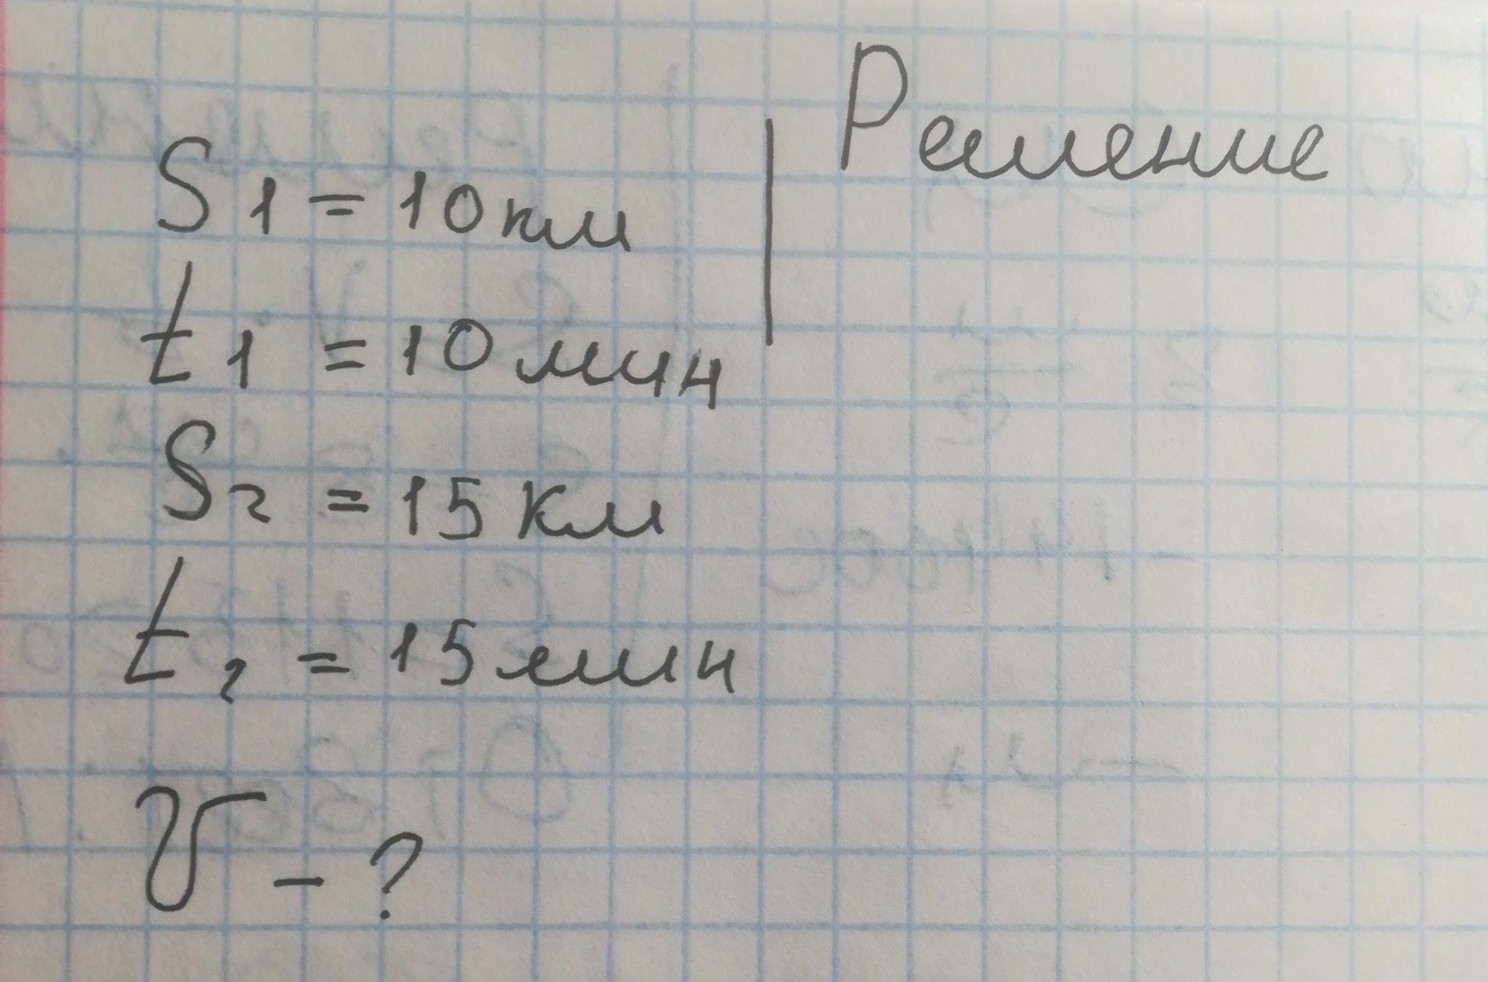 Решение
S1 = 10км
t1 = 10мин
S2 = 15км
t2 = 15мин
υ - ?